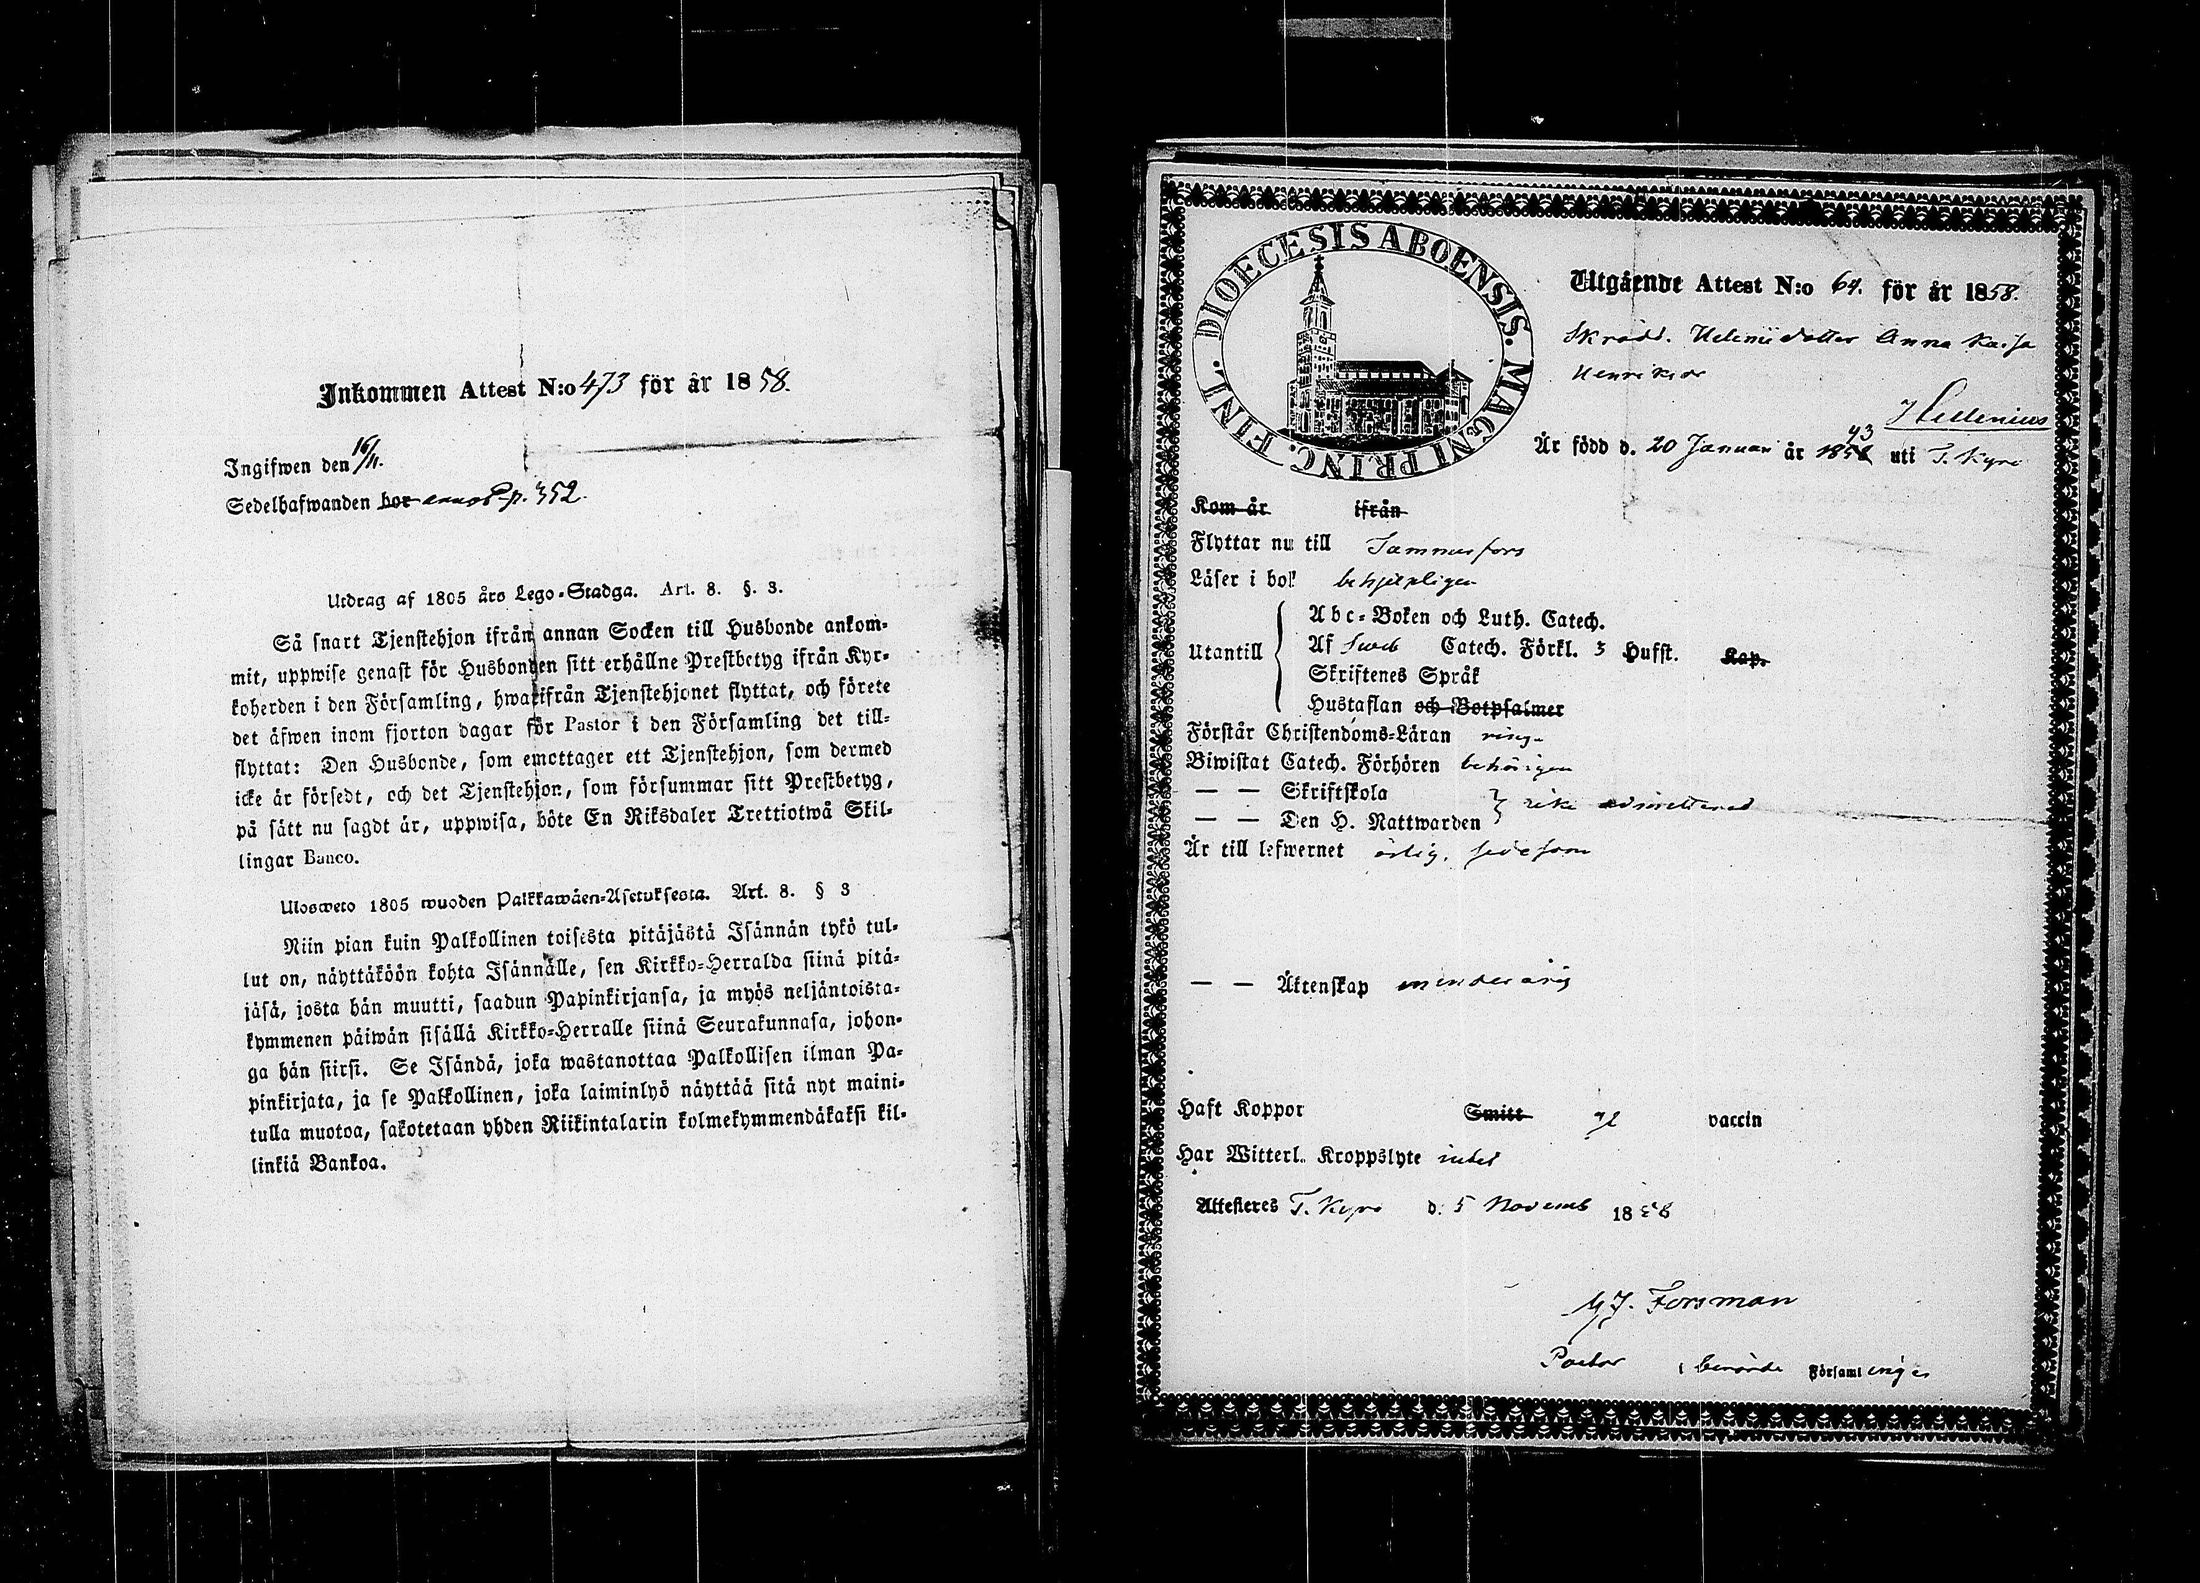 Inkommen Attest N:o 473 för år 1858.
Ingifwen den 16/11.
Sedelhafwanden bor annot. p. 352.
Utdrag af 1805 års Lego-Stadga. Art. 8. §. 3.
Så snart Tjenstehjon ifrån annan Socken till Husbonde ankom-
mit, uppwise genast för Husbonden sitt erhållne Prestbetyg ifrån Kyr-
koherden i den Församling, hwarifrån Tjenstehjonet flyttat, och förete
det äfwen inom fjorton dagar för Pastor i den Församling det till-
flyttat: Den Husbonde, som emottager ett Tjenstehjon, som dermed
icke är försedt, och det Tjenstehjon, som försummar sitt Prestbetyg,
på sätt nu sagdt är, uppwisa, böte En Riksdaler Trettiotwå Skil-
lingar Banco.
Ulosweto 1805 wuoden Palkkawäen-Asetuksesta. Art. 8. § 3
Niin pian kuin Palkollinen toisesta pitäjästä Isännän tykö tul-
lut on, näyttäköön kohta Isännälle, sen Kirkko-Herralda siinä pitä-
jäsä, josta hän muutti, saadun Papinkirjansa, ja myös neljäntoista-
kymmenen päiwän sisällä Kirkko-Herralle siinä Seurakunnasa, johon-
ga hän siirsi. Se Isändä, joka wastanottaa Palkollisen ilman Pa-
pinkirjata, ja se Palkollinen, joka laiminlyö näyttää sitä nyt maini-
tulla muotoa, sakotetaan yhden Riikintalarin kolmekymmendäkaksi kil-
linkiä Bankoa.
DIOECESIS ABOENSIS. MAGNI PRINC. FINL.
Utgående Attest N:o 64. för år 1858.
Skrädd. dotter Anna Kaisa
Henriksdr
Hellenius
Är född d. 20 Januari år 1843 uti T. Kyro
Kom år ifrån
Flyttar nu till Tammerfors
Läser i bok behjelpligen
Utantill
Abc-Boken och Luth. Catech.
Af Sweb Catech. Förkl. 3 Hufst. Kap.
Skriftenes Språk
Hustaflan och Botpsalmer
Förstår Christendoms-Läran ringa
Biwistat Catech. Förhören behörigen
— — Skriftskola
— — Den H. Nattwarden } icke admitterad
Är till lefwernet ärlig, sedesam
— — Äktenskap minderårig
Haft Koppor Smitt vaccin
Har Witterl. Kroppslyte intet
Attesteres T. Kyro d. 5 Novemb 1858
G J. Forsman
Pastor i berörde Församlingen